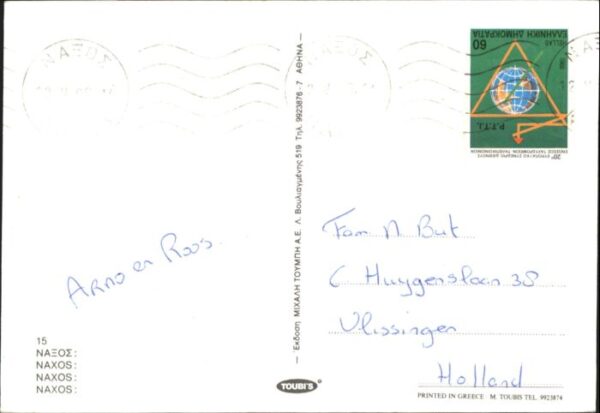 ΝΑΞΟΣ
ΝΑΞΟΣ
ΕΛΛΗΝΙΚΗ ΔΗΜΟΚΡΑΤΙΑ
HELLAS
60
P.T.T.I.
Arno en Roos.
15
ΝΑΞΟΣ:
NAXOS:
NAXOS:
NAXOS:
— Έκδοση: ΜΙΧΑΛΗ ΤΟΥΜΠΗ Α.Ε. Λ. Βουλιαγμένης 519 Τηλ. 9923876 - 7 ΑΘΗΝΑ —
TOUBI'S
Fam N. But
C Huygenslaan 38
Vlissingen
Holland
PRINTED IN GREECE M. TOUBIS TEL. 9923874